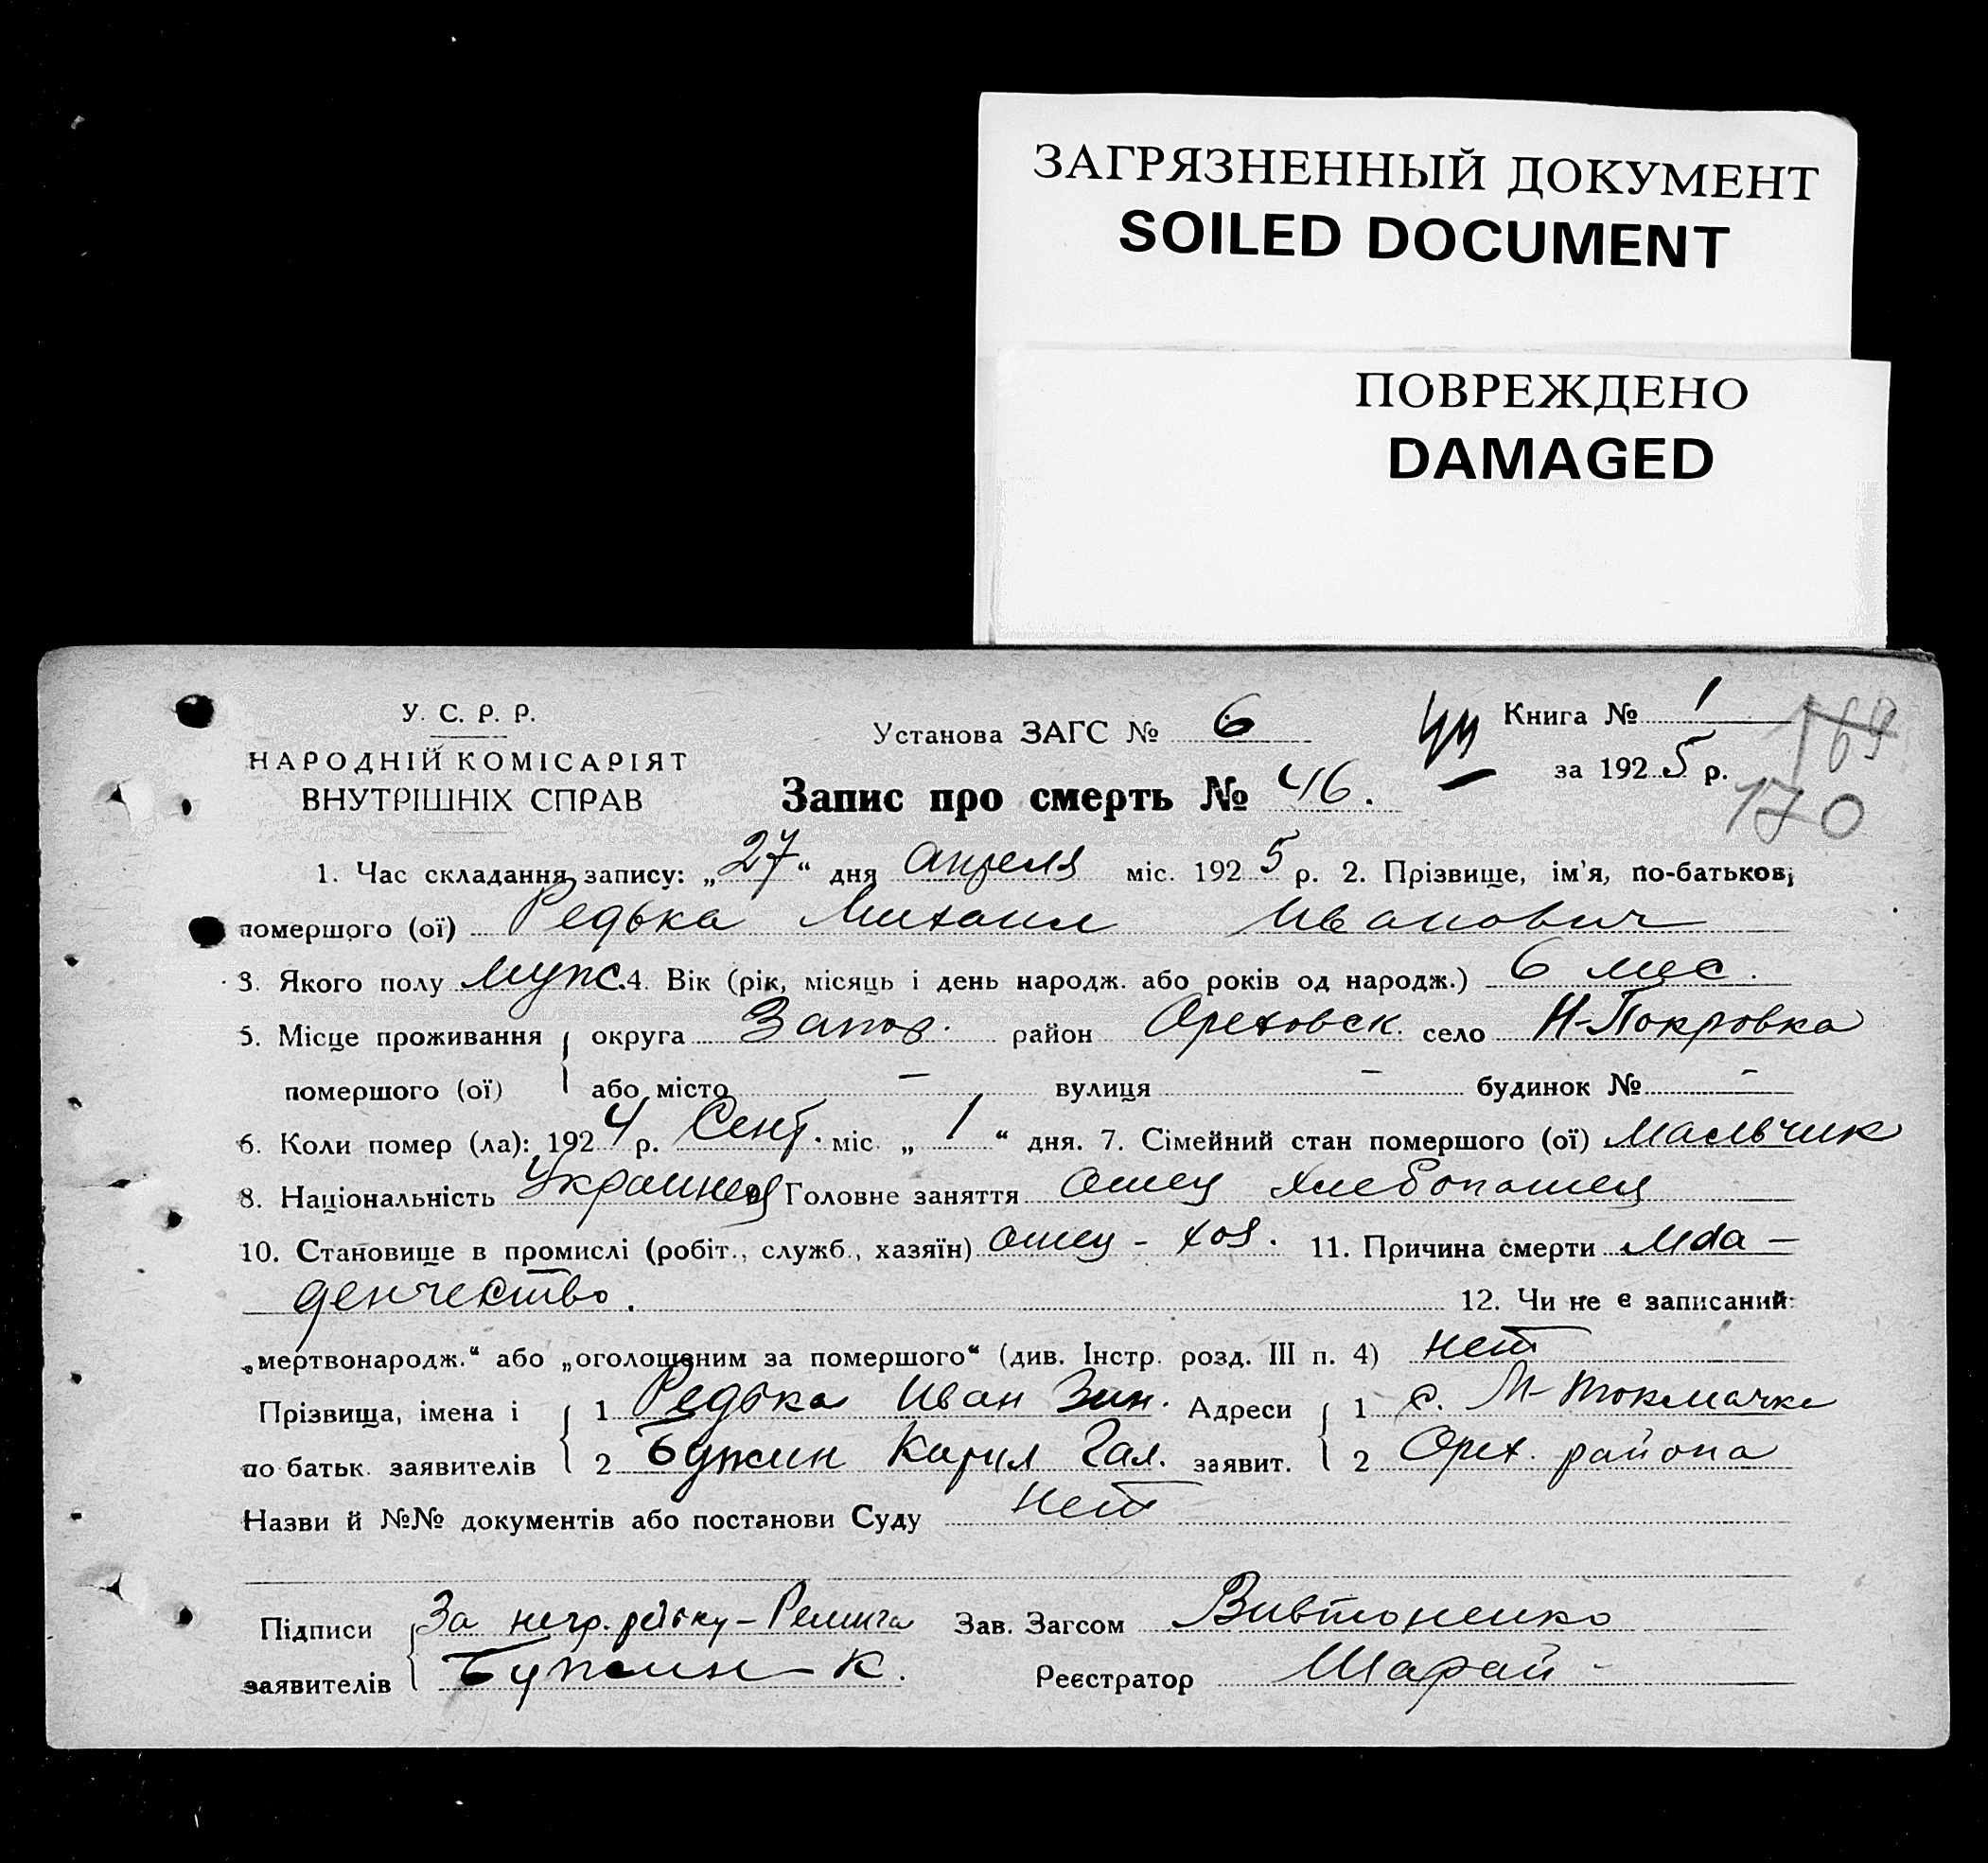 ЗАГРЯЗНЕННЫЙ ДОКУМЕНТ
SOILED DOCUMENT
ПОВРЕЖДЕНО
DAMAGED
У. С. Р. Р.
НАРОДНІЙ КОМІСАРІЯТ
ВНУТРІШНІХ СПРАВ
Установа ЗАГС № 6
Книга № 1
за 1925 р.
169
170
Запис про смерть № 46.
1. Час складання запису: „27“ дня Апреля міс. 1925 р. 2. Прізвище, ім'я, по-батькові
помершого (ої) Редька Михаил Иванович
3. Якого полу муж. 4. Вік (рік, місяць і день народж. або років од народж.) 6 мес.
5. Місце проживання округа Запор. район Ореховск. село Н-Покровка
помершого (ої) або місто – вулиця – будинок № –
6. Коли помер (ла): 1924 р. Сент. міс. „1“ дня. 7. Сімейний стан помершого (ої) мальчик
8. Національність Украинец Головне заняття Отец хлебопашец
10. Становище в промислі (робіт., служб., хазяїн) отец - хоз. 11. Причина смерти мла-
денчество. 12. Чи не є записаний:
„мертвонародж.“ або „оголошеним за помершого“ (див. Інстр. розд. III п. 4) нет
Прізвища, імена і 1 Редька Иван Зин. Адреси 1 с. М-Токмачка
по батьк. заявителів 2 Бужин Кирил Гал. заявит. 2 Орех. района
Назви й №№ документів або постанови Суду нет
Підписи За негр. редьку - Зав. Загсом Вивтоненко
заявителів Бужин К. Реєстратор Шарай